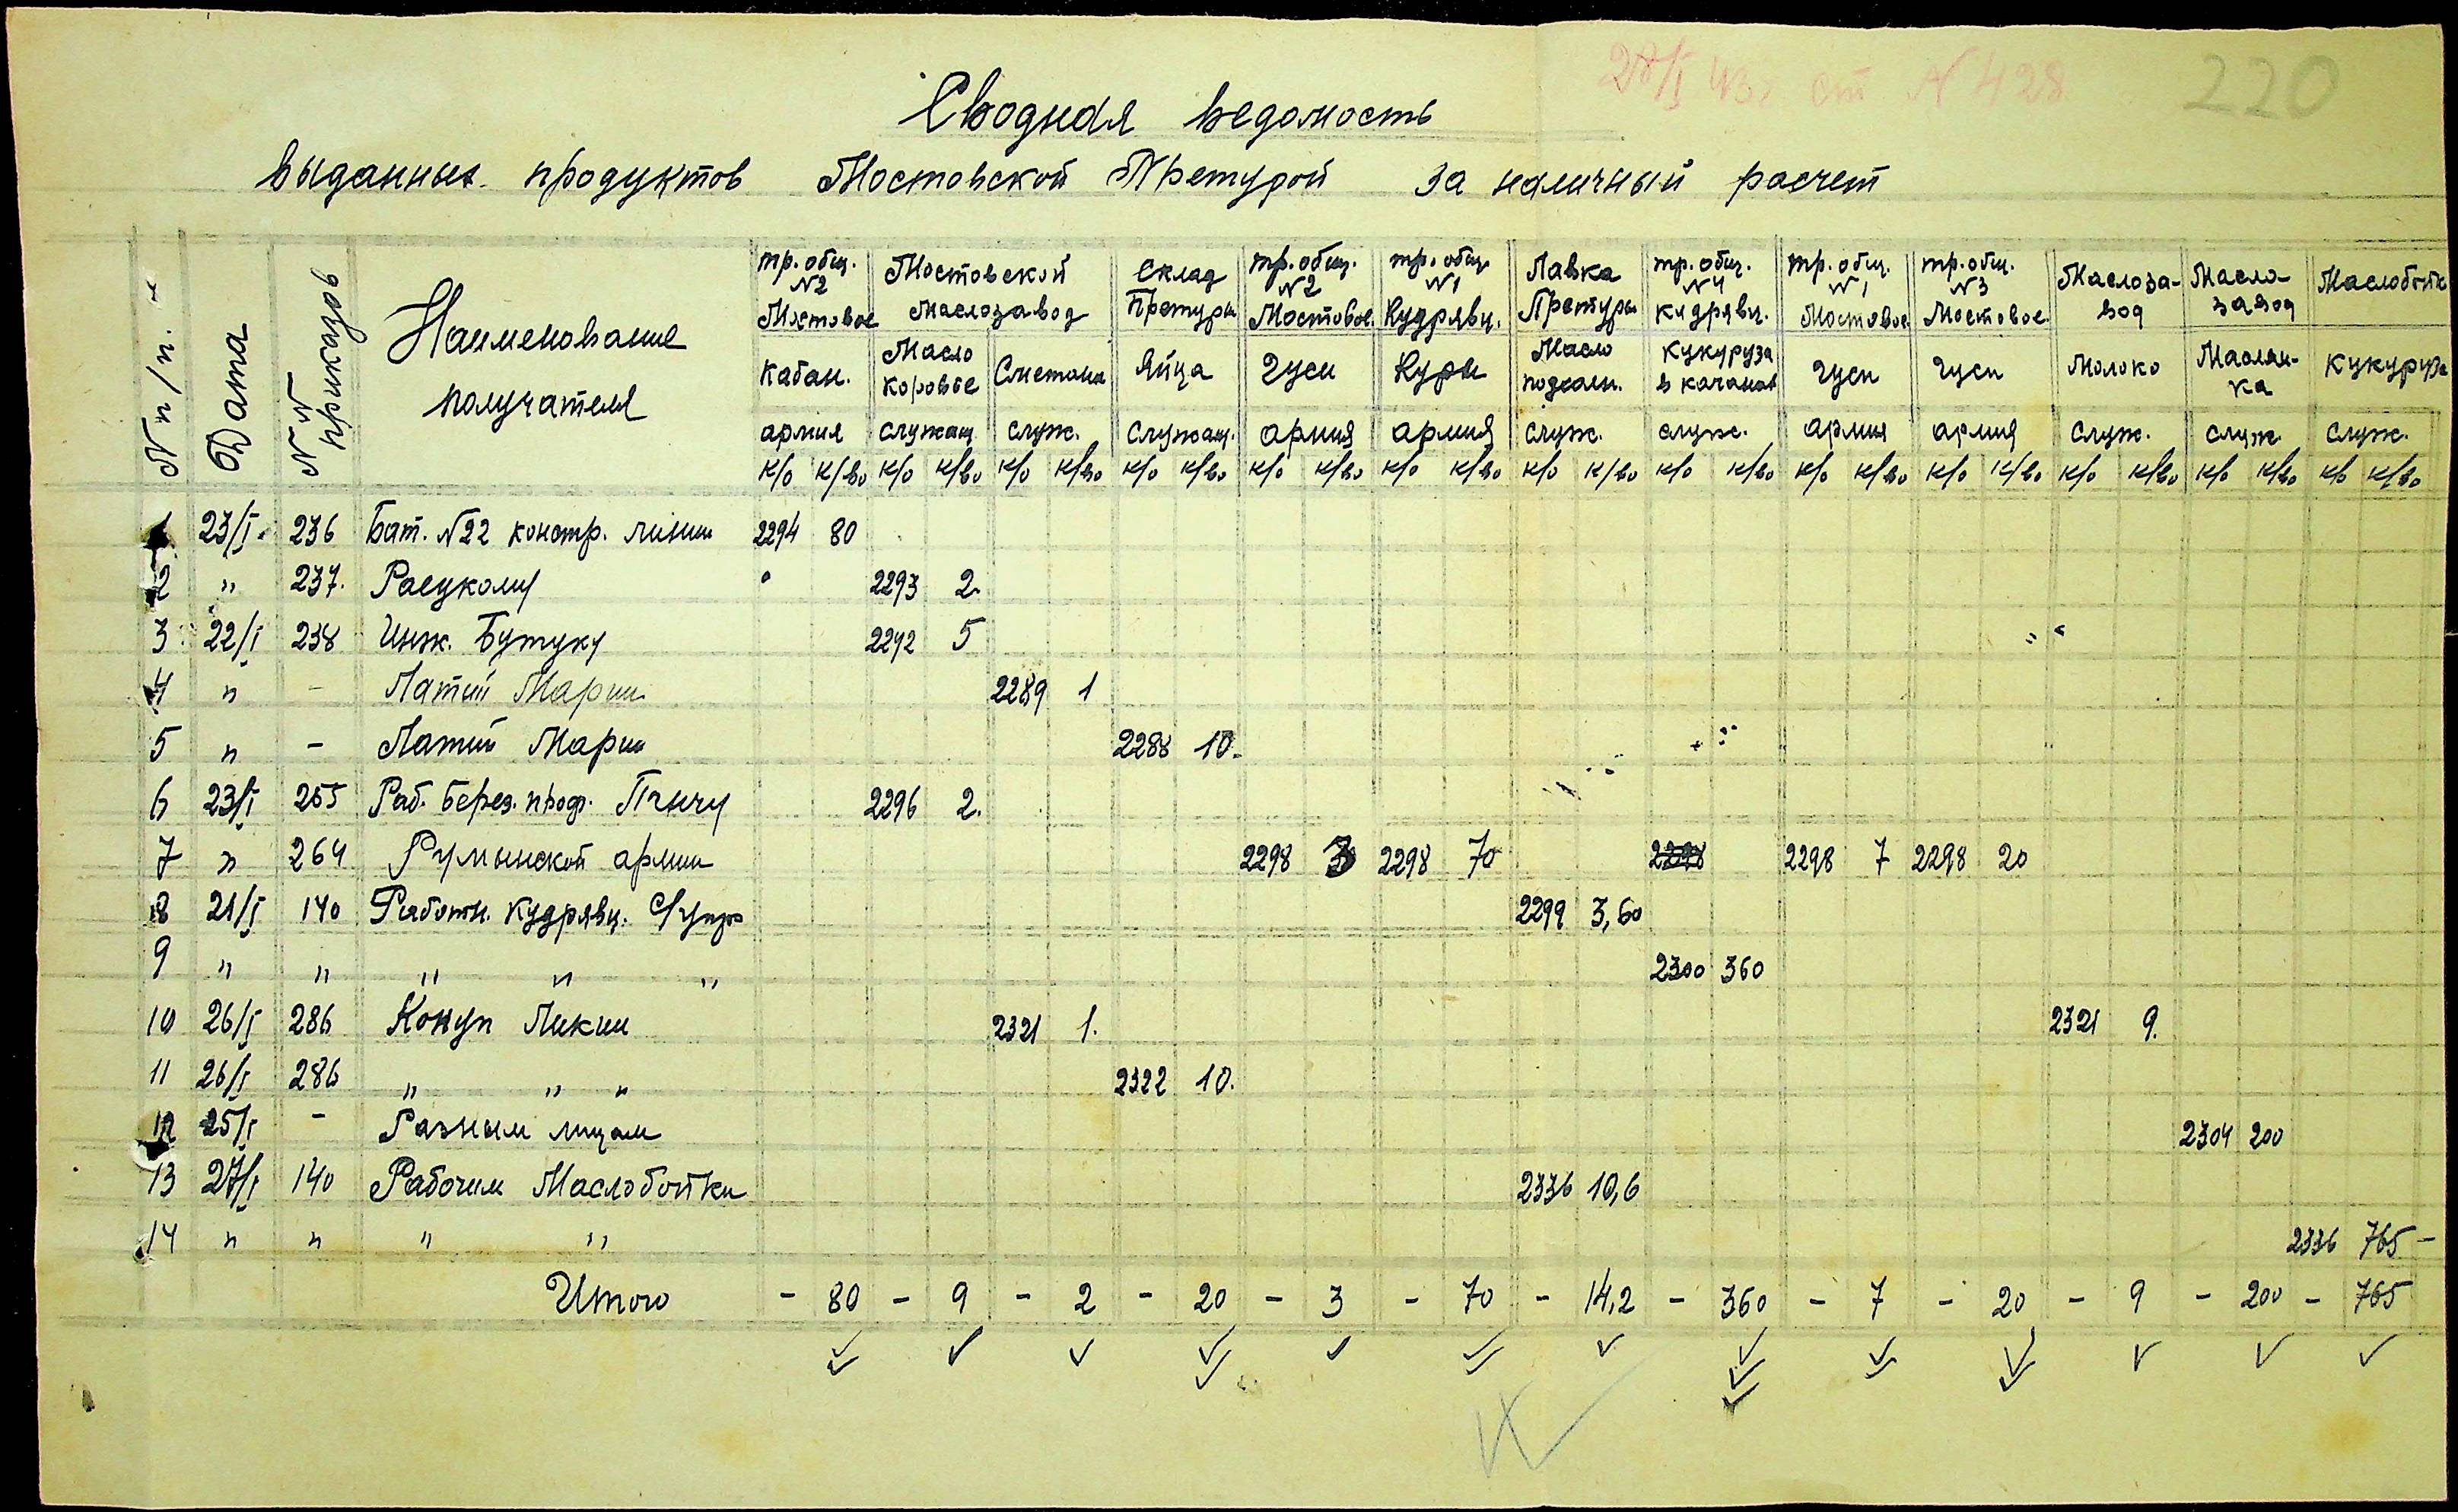 28/I № 428
220
Сводная ведомость
выданных продуктов Мостовской Претурой за наличный расчет
№ п/п.
Дата
№№ приказов
Наименование получателя
тр. общ. №2 Мостовое
Мостовской маслозавод
Склад Претуры
тр. общ. №2 Мостовое
тр. общ. №1 Кудрявц.
Лавка Претуры
тр. общ. №4 Кудрявц.
тр. общ. №1 Мостовое
тр. общ. №3 Мостовое
Маслоза-вод
Масло-завод
Маслобойк
Кабан. Масло коровье Сметана Яйца Гуси Куры Масло подсолн. Кукуруза в качанах Гуси Гуси Молоко Маслян-ка Кукуруза
армия служащ. служ. служащ. армия армия служ. служ. армия армия служ. служ. служ.
к/о к/во к/о к/во к/о к/во к/о к/во к/о к/во к/о к/во к/о к/во к/о к/во к/о к/во к/о к/во к/о к/во к/о к/во к/о к/во
1 23/I 236 Бат. №22 констр. линии 2294 80
2 " 237. 2293 2.
3 22/I 238 Инж. Бутуку 2292 5
4 " - Латий Марии 2289 1
5 " - Латий Марии 2288 10.
6 23/I 255 Раб. берез. 2296 2.
7 " 264 Румынской армии 2298 3 2298 70 2298 2298 7 2298 20
8 21/I 140 Работн. Кудрявц. 2299 3,60
9 " " " " " 2300 360
10 26/I 286 Конуп Ликии 2321 1. 2321 9.
11 26/I 286 " " " 2322 10.
12 25/I - Разным лицам 2304 200
13 27/I 140 Рабочим Маслобойки 2336 10,6
14 " " " " 2336 765 -
Итого - 80 - 9 - 2 - 20 - 3 - 70 - 14,2 - 360 - 7 - 20 - 9 - 200 - 765